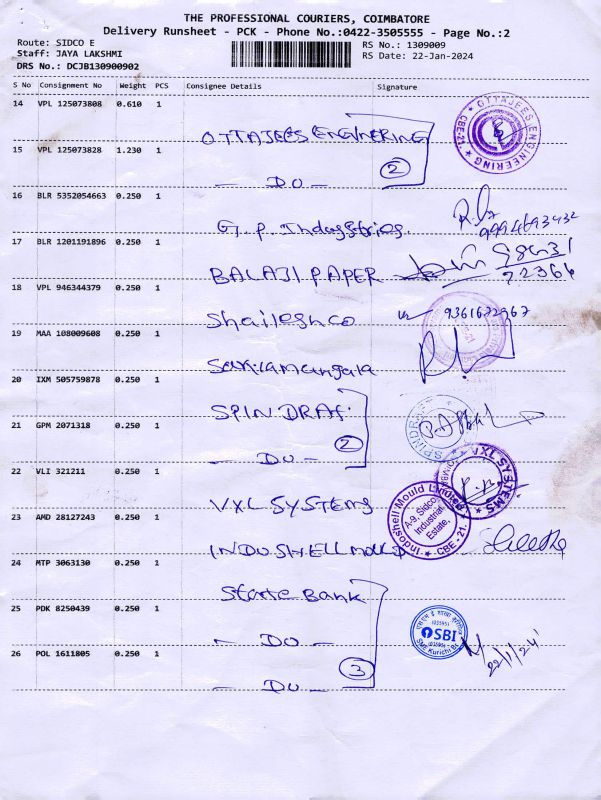 THE PROFESSIONAL COURIERS, COIMBATORE
Delivery Runsheet - PCK - Phone No.:0422-3505555 - Page No.:2
Route: SIDCO E
RS No.: 1309009
Staff: JAYA LAKSHMI
RS Date: 22-Jan-2024
DRS No.: DCJB130900902
S No Consignment No Weight PCS Consignee Details Signature
14 VPL 125073808 0.610 1
OTTAJEES ENGINEERING
OTTAJEES ENGINEERING
★ CBE-21. ★
15 VPL 125073828 1.230 1
2
- DO -
16 BLR 5352054663 0.250 1
G. P. Industries.
9994693432
17 BLR 1201191896 0.250 1
BALAJI PAPER
98431
72366
18 VPL 946344379 0.250 1
Shailesh co
9361672967
19 MAA 108009608 0.250 1
20 IXM 505759878 0.250 1
SPINDRAF.
21 GPM 2071318 0.250 1
2
- DO -
22 VLI 321211 0.250 1
VXL SYSTEMS
VXL SYSTEMS
23 AMD 28127243 0.250 1
INDUSHELL MOULD
Indoshell Mould Limited
A-9, Sidco
Industrial
Estate,
★ CBE - 21. ★
24 MTP 3063130 0.250 1
State Bank
25 PDK 8250439 0.250 1
- DO -
SBI
22/1/24
26 POL 1611805 0.250 1
3
- DO -